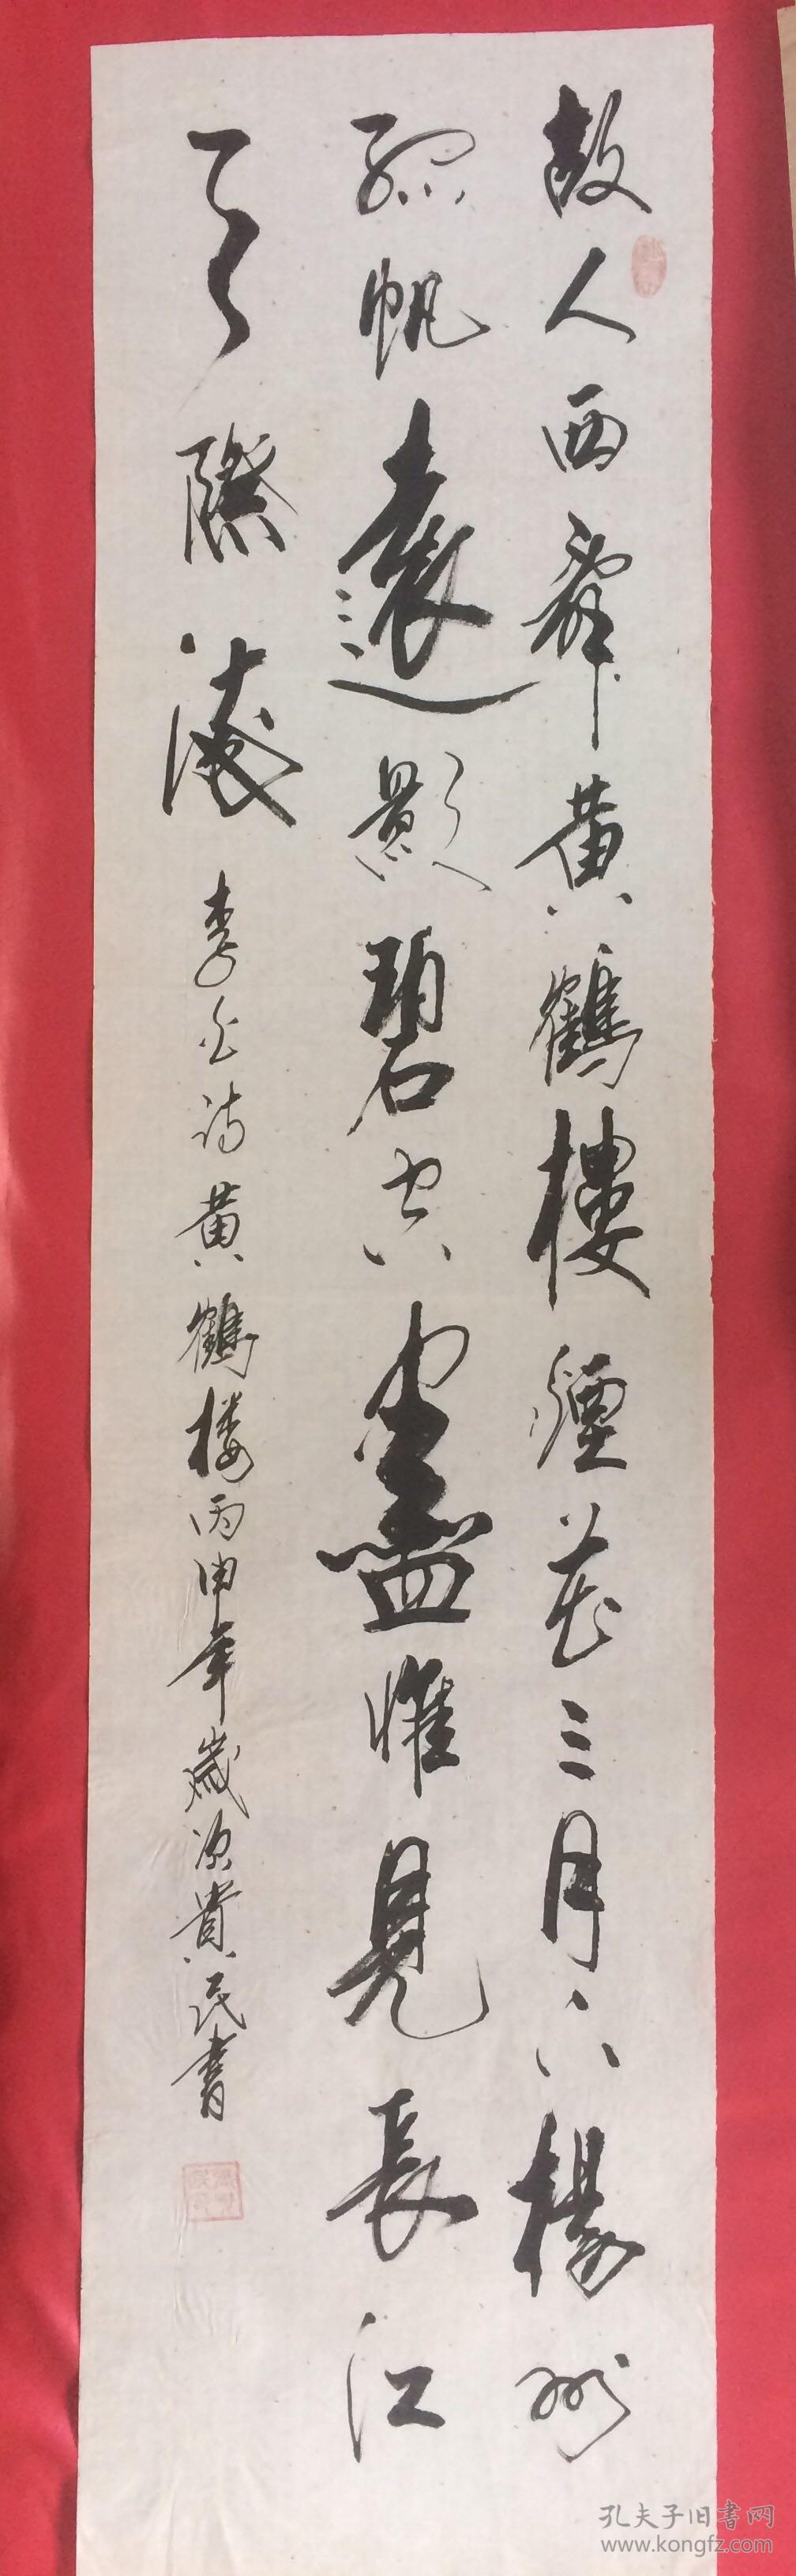 故人西辞黄鶴樓煙花三月下楊州
孤帆遠影碧空盡惟見長江
天際流
李白诗黄鶴楼丙申年歲次貴民書
孔夫子旧書网
www.kongfz.com